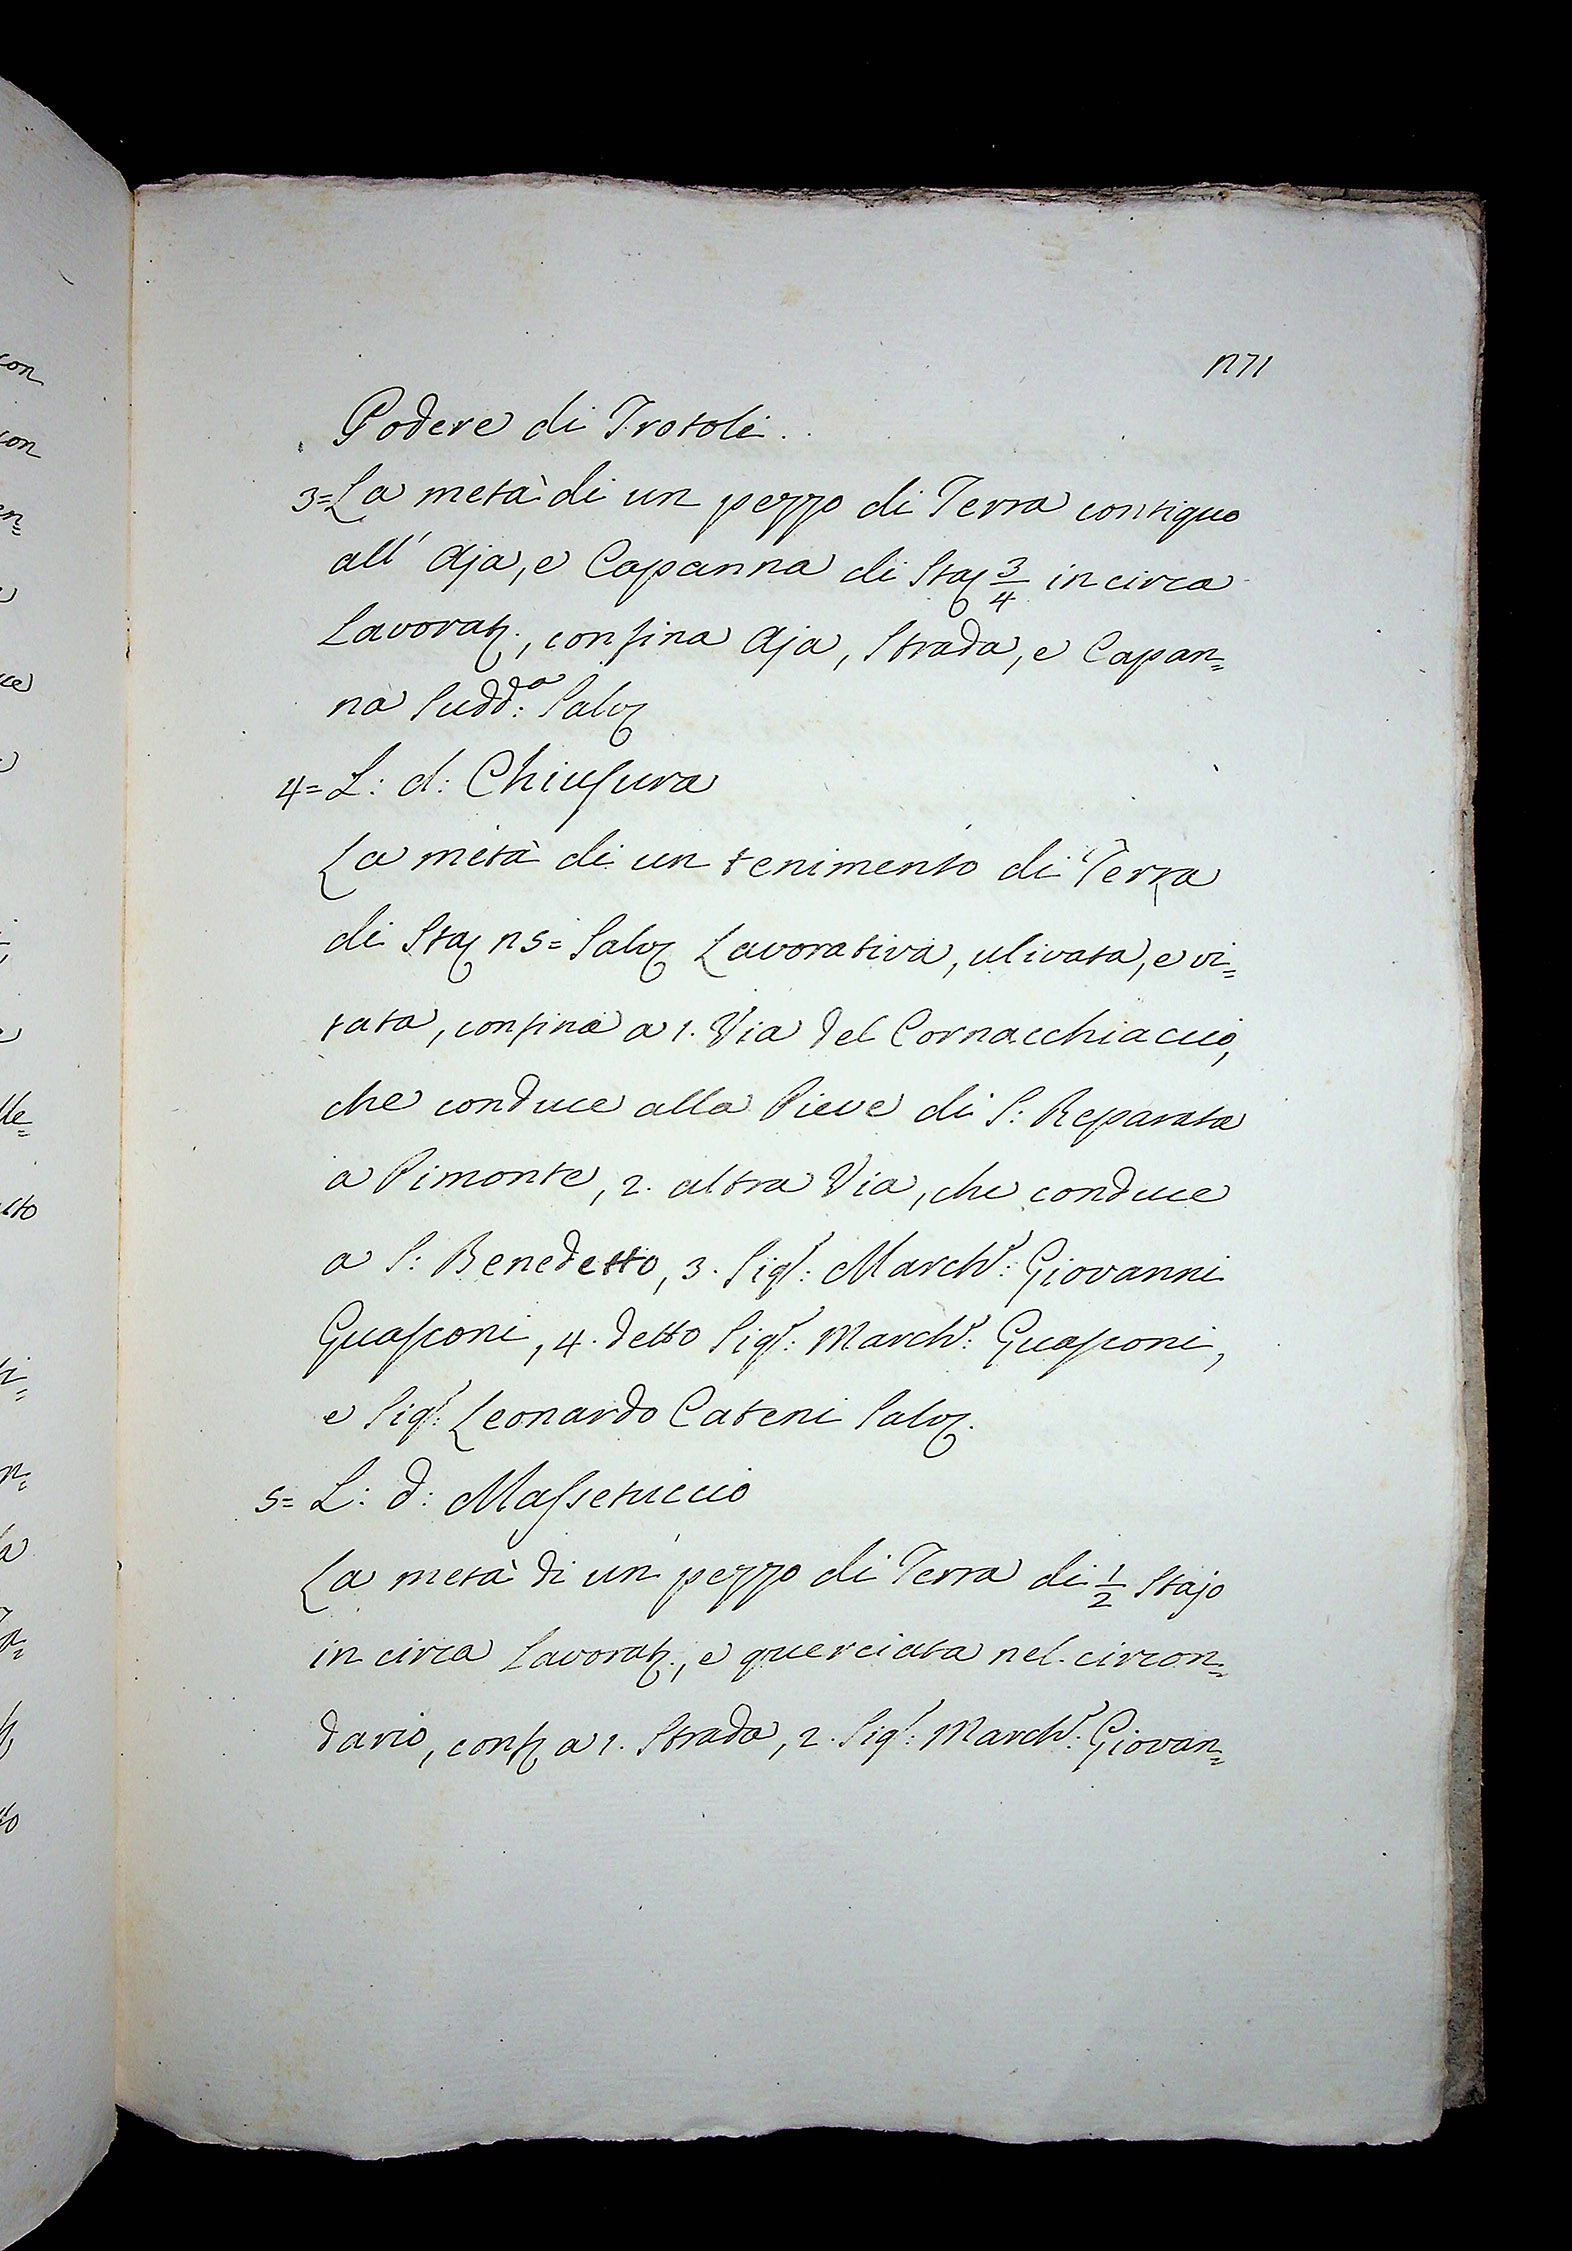 n71
Podere di Trotoli..
3=La metà di un pezzo di Terra contiguo
all' Aja, e Capanna di Staj 3/4 in circa
Lavorat., confina Aja, Strada, e Capan=
na Sudd:a Salv
4= L: d: Chiusura
La metà di un tenimento di Terra
di Staj n5= Salv Lavorativa, ulivata, e vi=
tata, confina a 1. Via del Cornacchiaccio,
che conduce alla Pieve di S: Reparata
a Pimonte, 2. altra Via, che conduce
a S: Benedetto, 3. Sigr: Marchr: Giovanni
Guasconi, 4. detto Sigr: Marchr: Guasconi,
e Sigr: Leonardo Cateni Salv.
5= L: d: Massetuccio
La metà di un pezzo di Terra di 1/2 Stajo
in circa Lavorat., e querciata nel circon=
dario, conf a 1. Strada, 2. Sigr: Marchr: Giovan=
con
con
en=
ce
lle=
cto